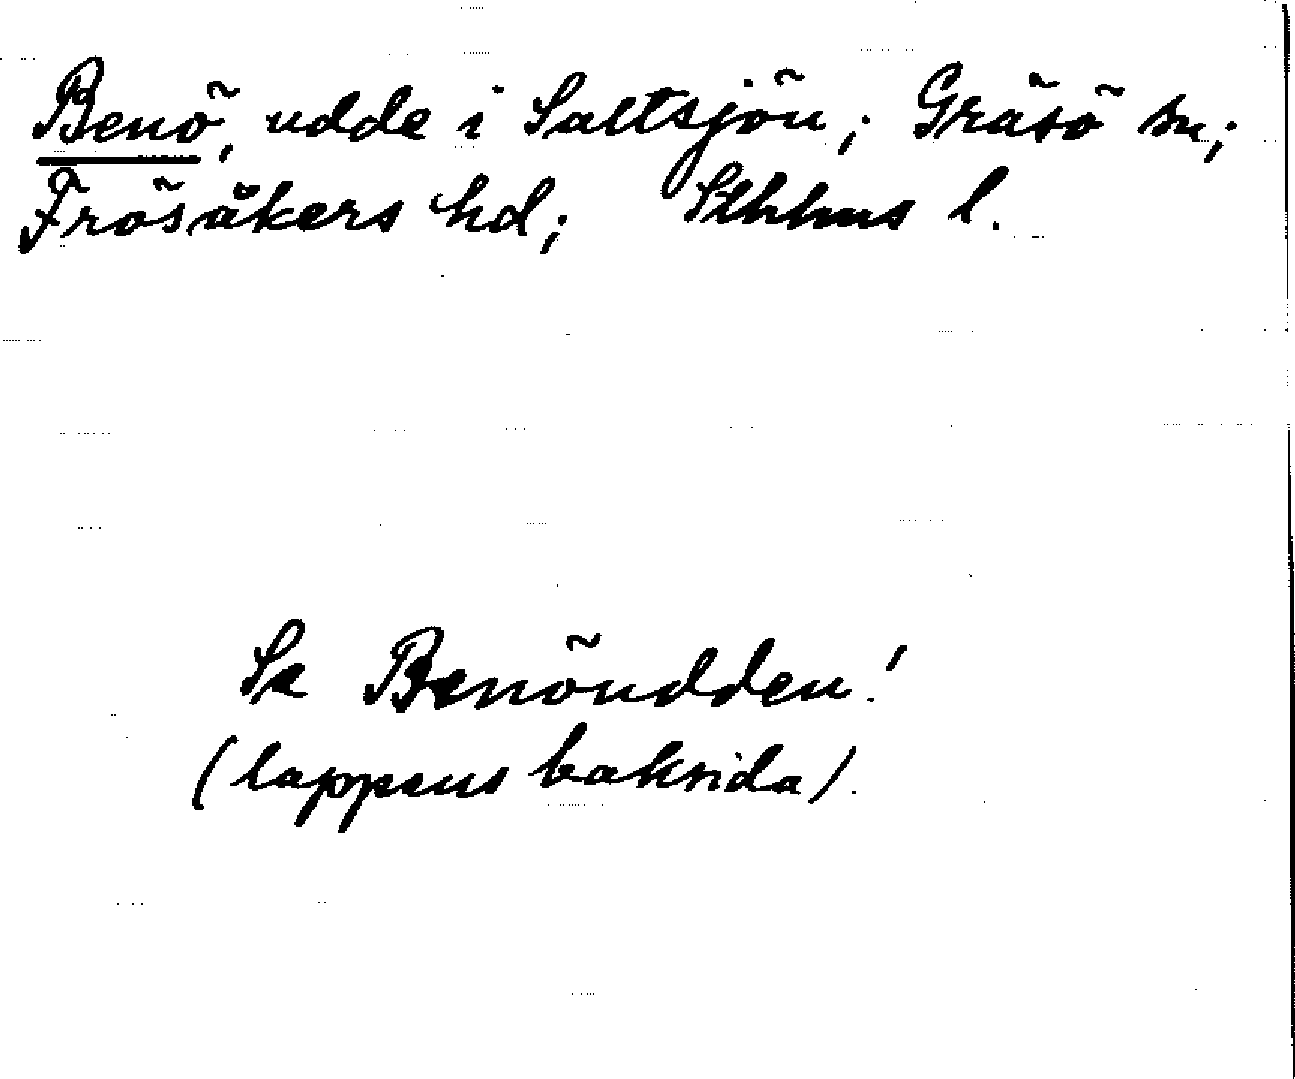 Benö, udde i Saltsjön; Gräsö sn;
Frösåkers hd; Sthlms l.
Se Benöudden!
(lappens baksida).